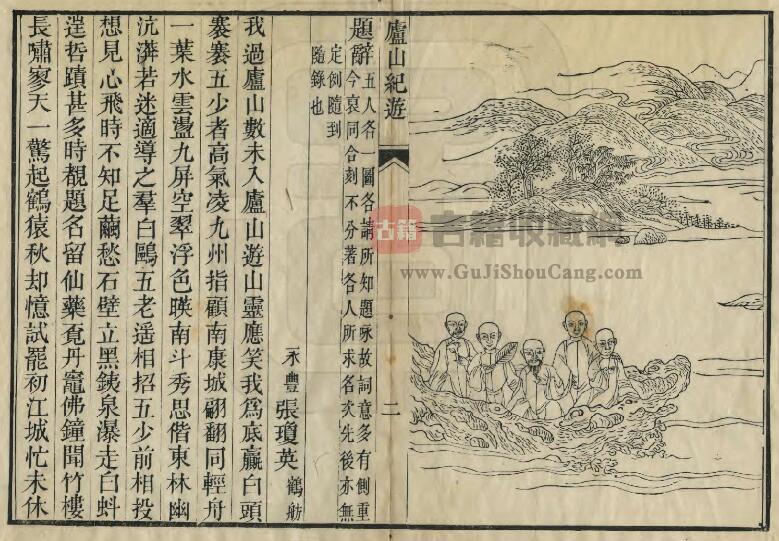 廬山紀遊
二
題辭
五人各一圖各請所知題咏故詞意多有側重
今裒同合刻不分著各人所求名次先後亦無
定例隨到
隨錄也
永豐 張瓊英 鶴舫
我過廬山數未入廬山遊山靈應笑我爲底贏白頭
褰褰五少者高氣凌九州指顧南康城翩翩同輕舟
一葉水雲盪九屏空翠浮色暎南斗秀思偕東林幽
沆漭若迷適導之羣白鷗五老遥相招五少前相投
想見心飛時不知足繭愁石壁立黑鉄泉瀑走白蚪
逹哲蹟甚多時覩題名留仙藥覔丹竈佛鐘聞竹樓
長嘯寥天一驚起鶴猿秋却憶試罷初江城忙未休
古籍
古籍收藏網
www.GuJiShouCang.com